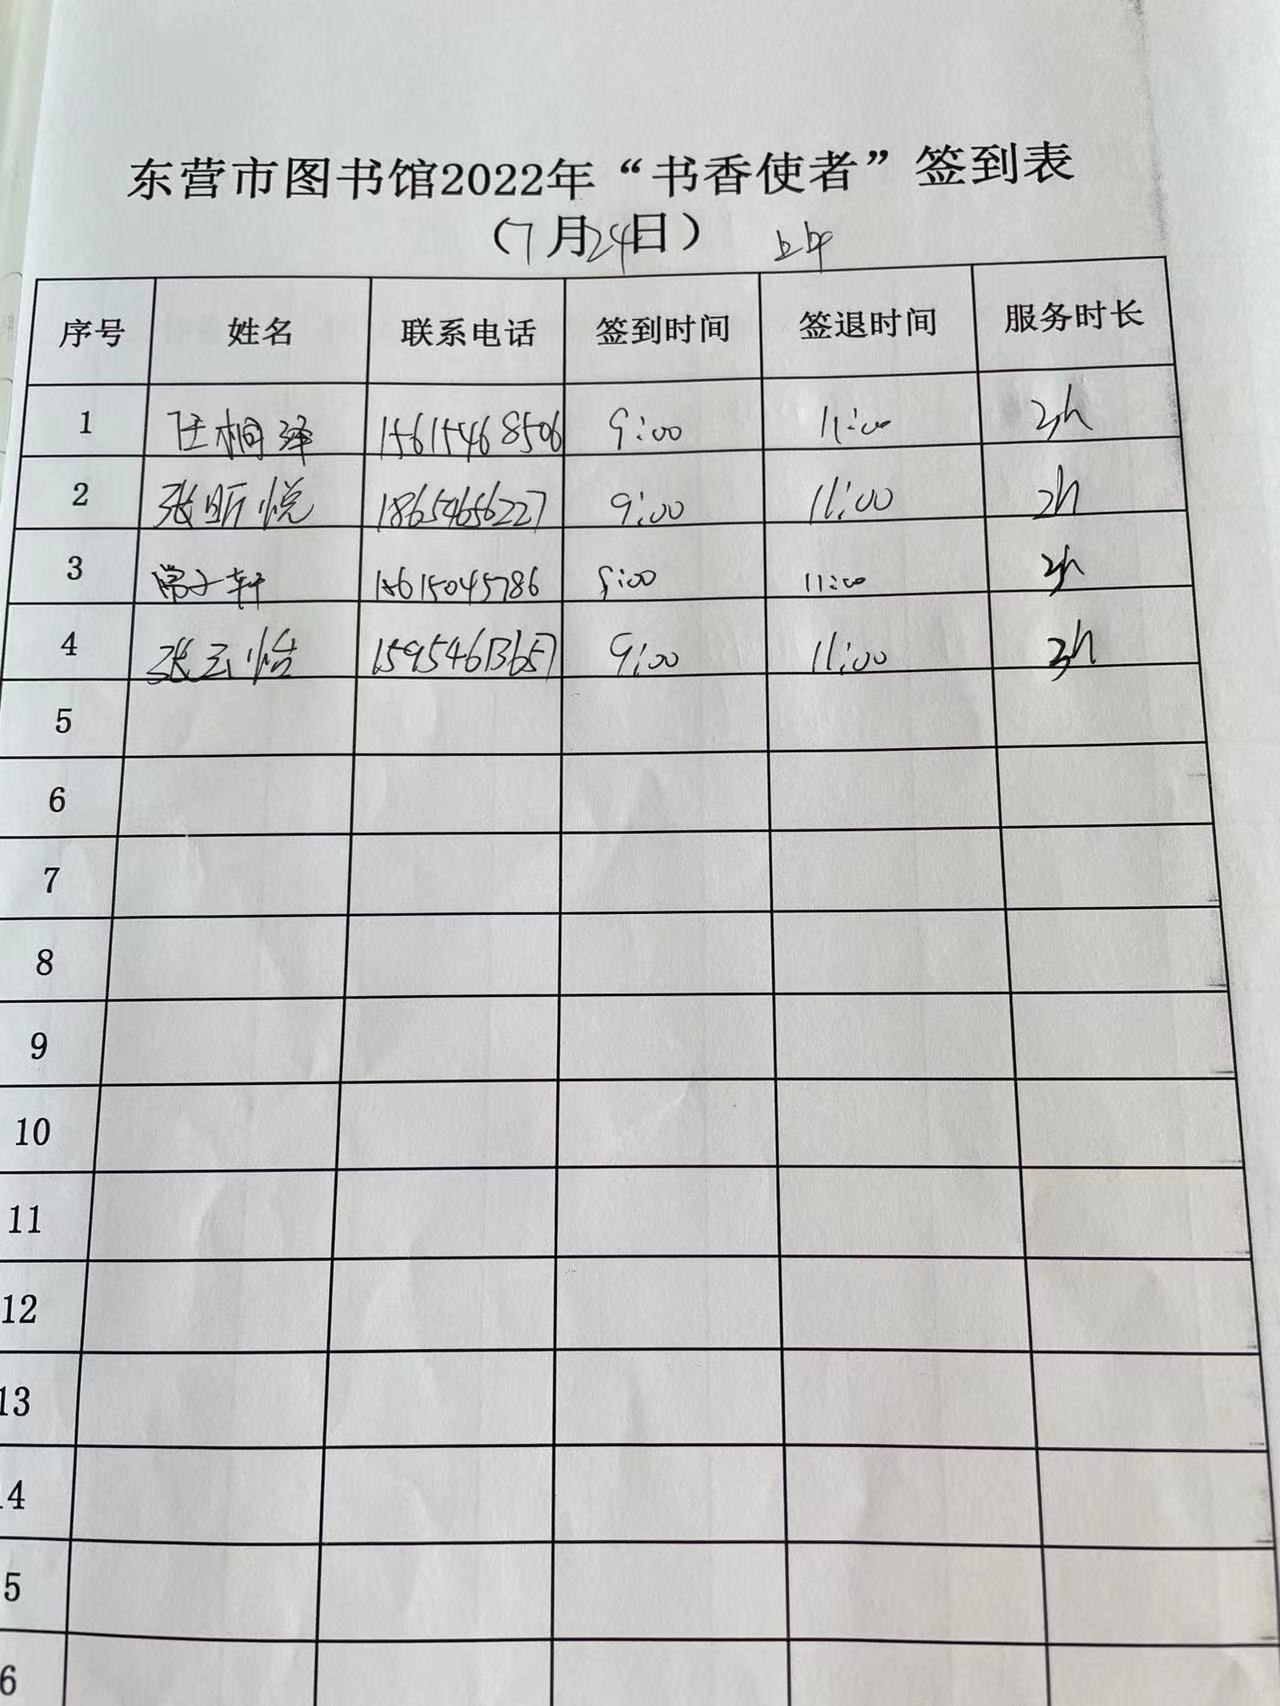 东营市图书馆2022年“书香使者”签到表
（7月24日） 上午
序号 姓名 联系电话 签到时间 签退时间 服务时长
1 任桐泽 15615468506 9:00 11:00 2h
2 张昕悦 18654656227 9:00 11:00 2h
3 常子轩 15615045786 9:00 11:00 2h
4 张云怡 15954613657 9:00 11:00 2h
5
6
7
8
9
10
11
12
13
4
5
6